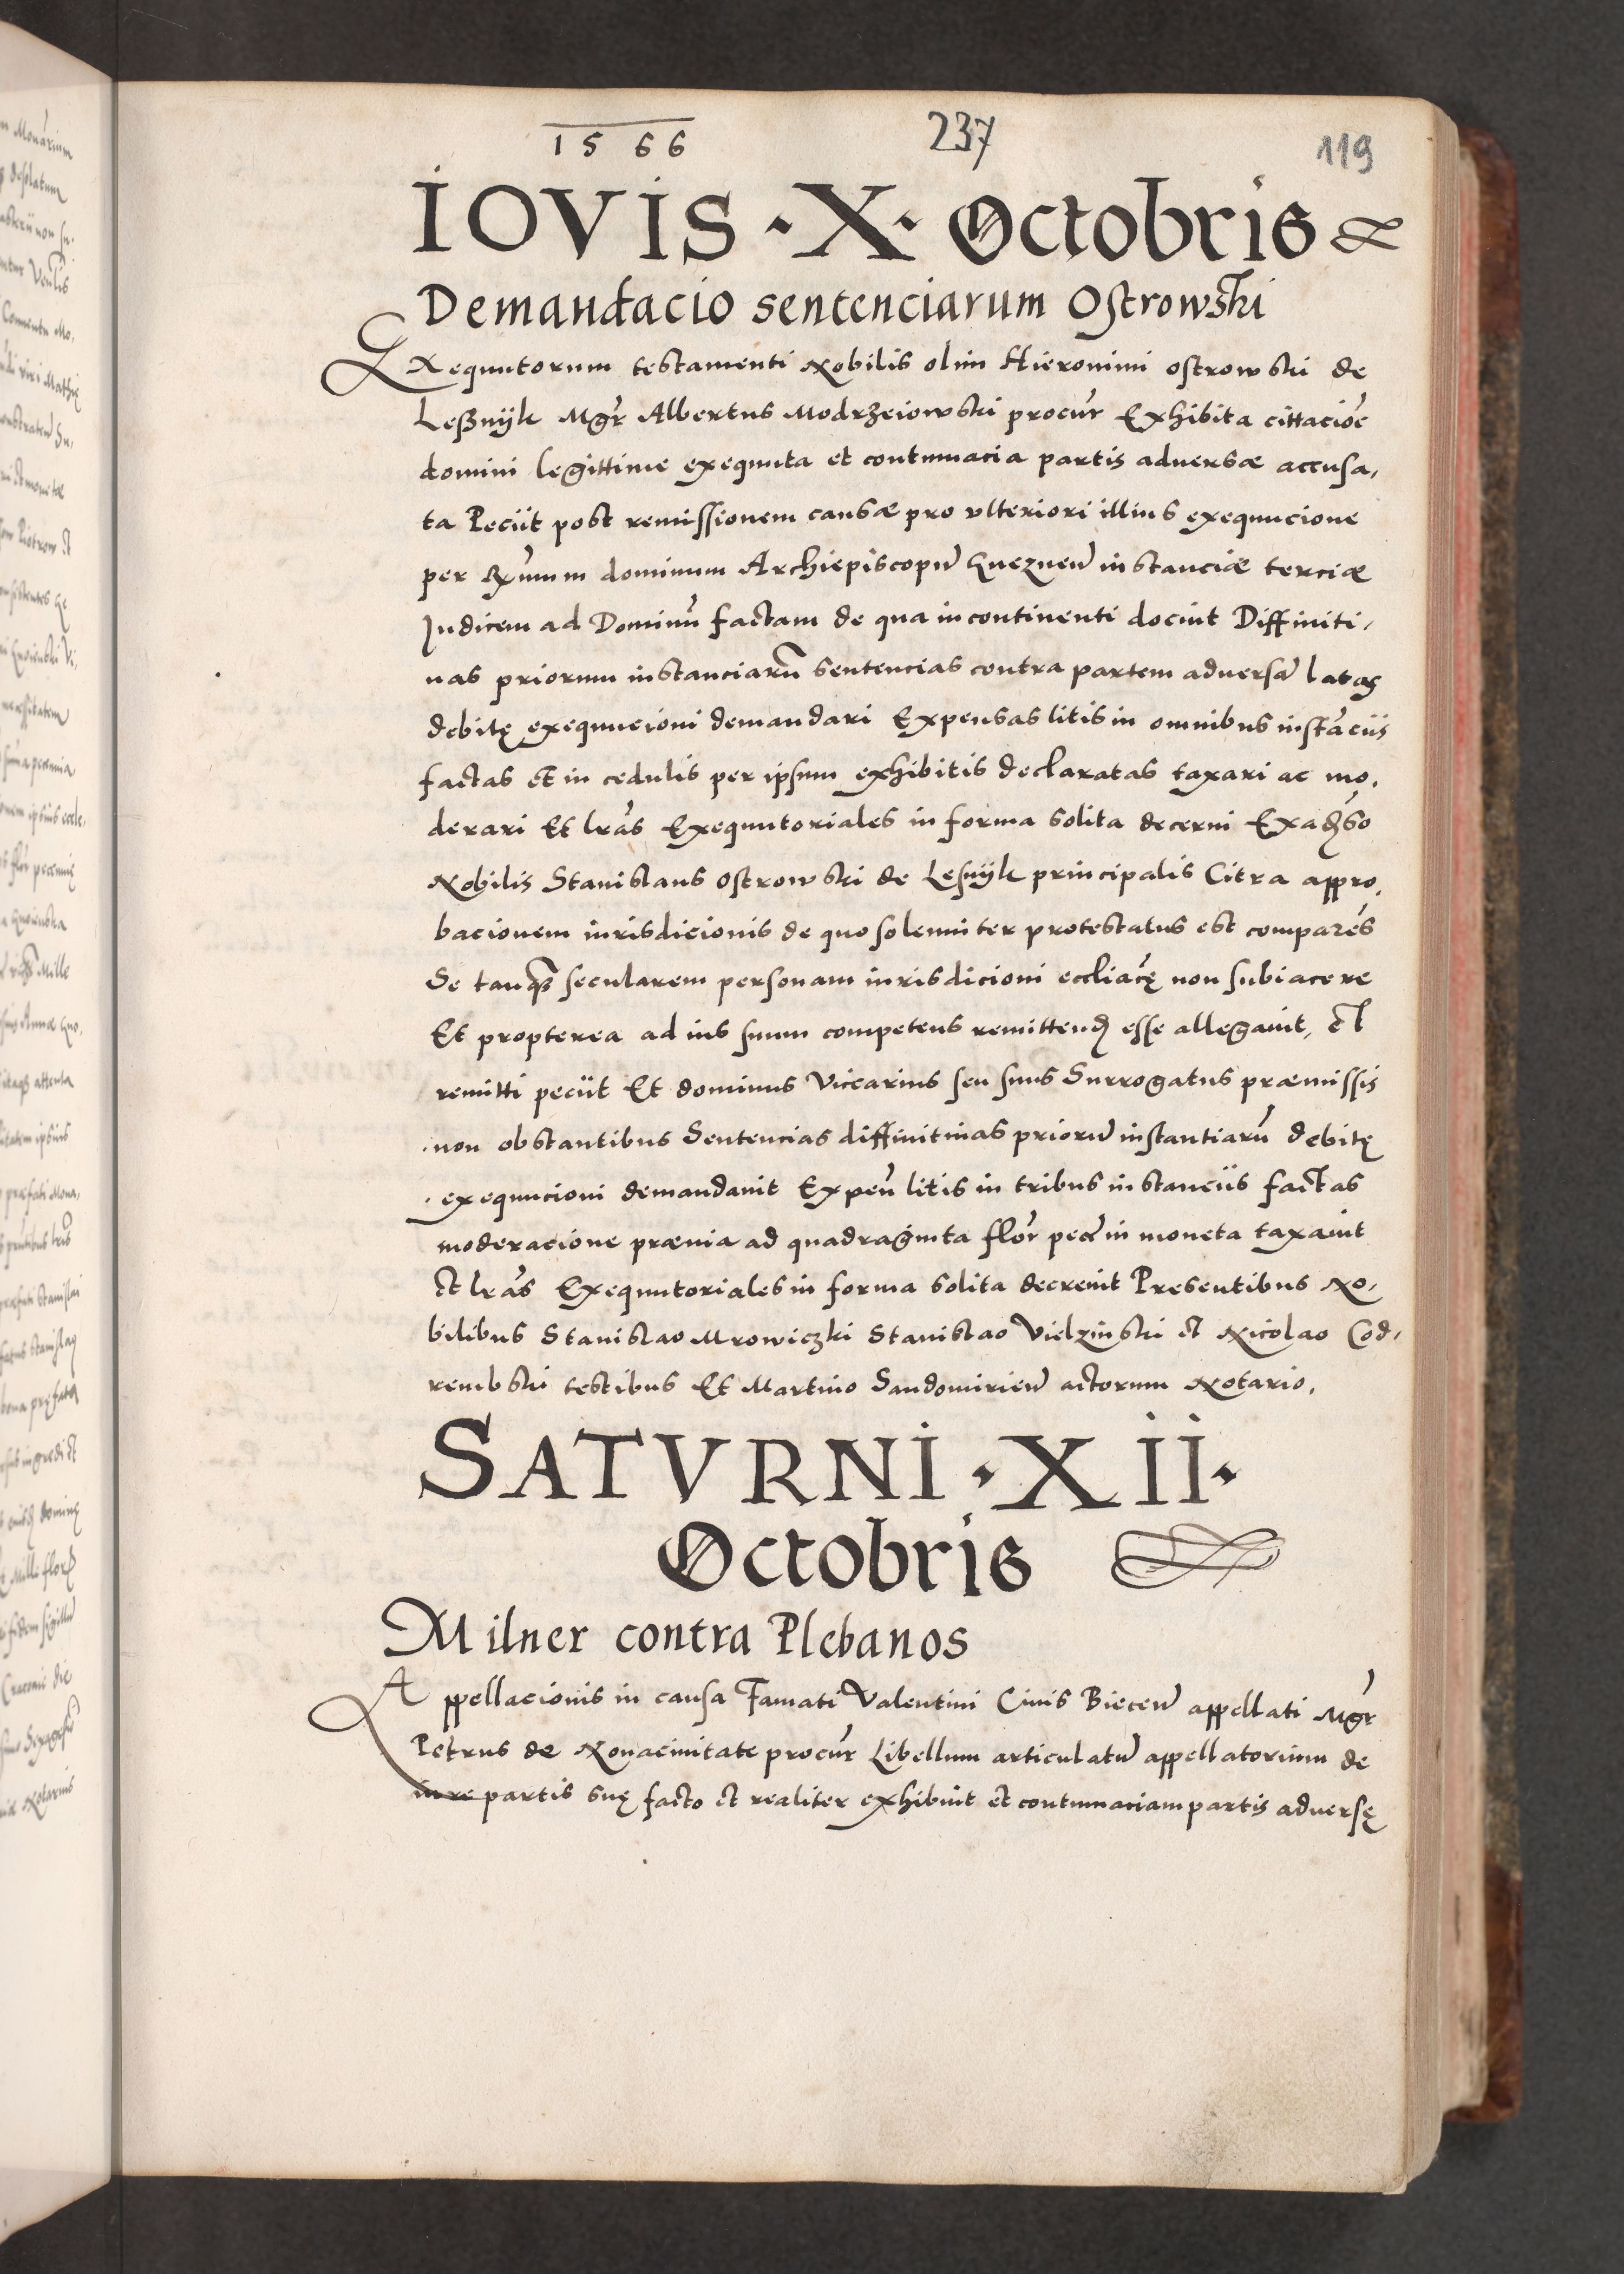 1566
237
119
IOVIS · X · Octobris
Demandacio sentenciarum Ostrowski
Exequutorum testamenti Nobilis olim Hieronimi ostrowski de
Leßnijk Mgr Albertus Modrzeiowski procur Exhibita cittacioe
domini legittime exequuta et contumacia partis adversæ accusa,
ta Peciit post remissionem causæ pro ulteriori illius exequucione
per Rmum dominum Archiepiscopu Gneznen instanciæ terciæ
Judicem ad Dominu factam de qua in continenti docuit Diffiniti,
uas priorum instanciaru sentencias contra partem aduersa latas
debitę exequucioni demandari Expensas litis in omnibus instaciis
factas et in cedulis per ipsum exhibitis declaratas taxari ac mo,
derari Et lras Exequutoriales in forma solita decerni Exadso
Nobilis Stanislaus ostrowski de Lesnijk principalis Citra appro,
bacionem iurisdicionis de quo solemniter protestatus est compares
Se tanq secularem personam iurisdicioni eccliacę non subiacere
Et propterea ad ius suum competens remittend esse allegauit, et
remitti peciit Et dominus Vicearius seu suus Surrogatus præmissis
non obstantibus Sentencias diffinitiuas prioru instantiaru debitę
exequucioni demandauit Expen litis in tribus instanciis factas
moderacione præuia ad quadraginta flor pec in moneta taxauit
et lras Exequutoriales in forma solita decreuit Presentibus No,
bilibus Stanislao Mrowiczki Stanislao Vielzinski et Nicolao Cod,
rembski testibus Et Martino Sandomirien actorum Notario.
SATVRNI · XII ·
Octobris
Milner contra Plebanos
Appellacionis in causa Famati Valentini Ciuis Biecen appellati Mgr
Petrus de Nouaciuitate procur Libellum articulatu appellatorium de
iure partis suę facto et realiter exhibuit et contumaciam partis aduersę